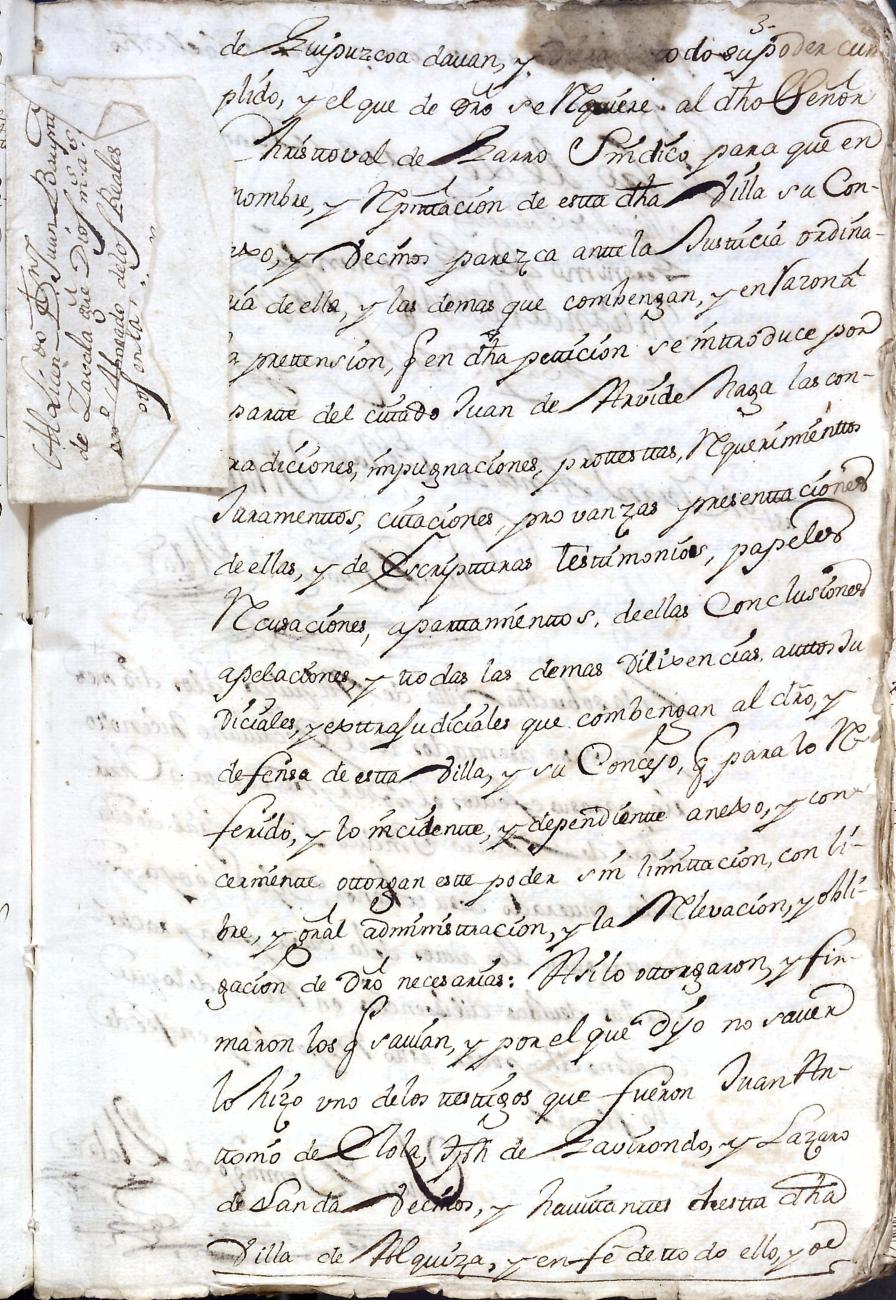 3.
de Guipuzcoa davan, y todo su poder cum
plido, y el que de dro se Requiere al dho Señor
Christoval de Barro Sindico para que en
nombre, y Rpntacion de estta dha Villa su Con-
exo, y Vecinos parezca antte la Justicia ordina-
ria de ella, y las demas que combengan, y en razon d
la prettension, q en dha petticion se inttroduce por
partte del cittado Juan de Arvide haga las con-
tradiciones, impugnaciones, prottesttas, Requerimienttos
Juramenttos, cittaciones, provanzas presenttaciones
de ellas, y de Escriptturas testtimonios, papeles
Recusaciones, aparttamienttos, de ellas Conclusiones
apelaciones, y ttodas las demas Dilixencias, auttos Ju
diciales, y exttrajudiciales que combengan al dro, y
defensa de estta Villa, y su Concejo, q para lo Re-
ferido, y lo incidentte, y dependientte anexo, y con-
cernientte ottorgan estte poder sin limittacion, con li-
bre, y gral administracion, y la Relevacion, y obli-
gacion de dro necesarias: Asi lo ottorgaron, y fir-
maron los q savian, y por el que dijo no saver
lo hizo uno de los testtigos que fueron Juan An-
ttonio de Elola, Jph de Zavirondo, y Lazaro
de Landa Vecinos, y havittanttes de estta dha
Villa de Alquiza, y en fe de ttodo ello, yo el
de Juan Bauptta
de Zavala que Dios
Abogado de los Reales